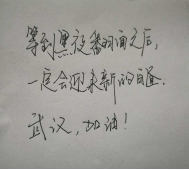 等到黑夜翻面之后,
一定会迎来新的白昼.
武汉,加油!